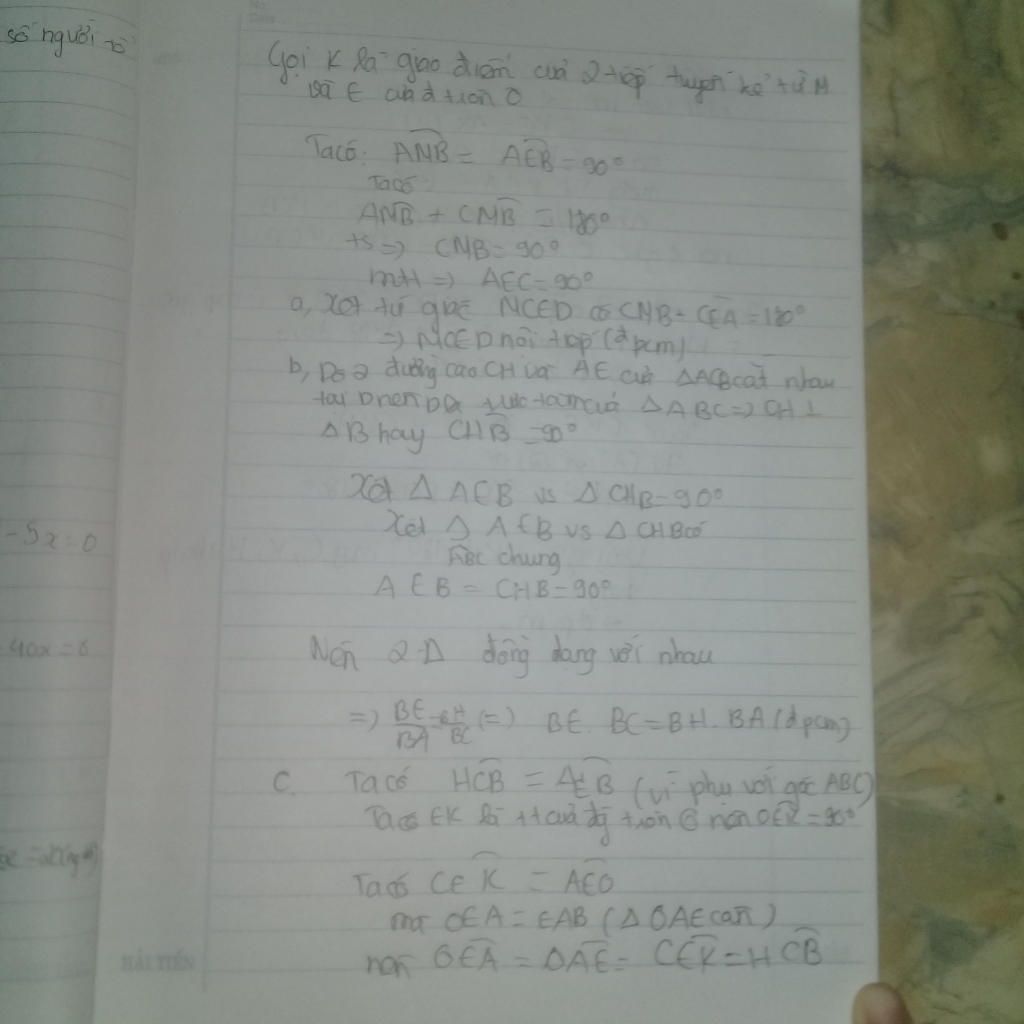 số người
- 5x = 0
40x = 0
Gọi K là giao điểm của 2 tiếp tuyến kẻ từ M
và E của đ tròn O
Ta có: ANB = AEB = 90°
Ta có
ANB + CMB = 180°
ts => CMB = 90°
mtt => AEC = 90°
a, Xét tứ giác MCED có CMB + CEA = 180°
=> MCED nội tiếp (đpcm)
b, Do 2 đường cao CH và AE của ΔACB cắt nhau
tại D nên D là trực tâm của ΔABC => CH ⊥
ΔB hay CHB = 90°
Xét Δ AEB vs Δ CHB = 90°
Xét Δ AEB vs Δ CHB có
ABC chung
AEB = CHB = 90°
Nên 2 Δ đồng dạng với nhau
=> BE/BA = BH/BC (=) BE. BC = BH. BA (đpcm)
C. Ta có HCB = AEB (vì phụ với góc ABC)
Ta có EK là tt của đg tròn O nên OEK = 90°
Ta có CEK = AEO
mà OEA = EAB (Δ OAE cân)
nên OEA = OAE = CEK = HCB
HẢI TIẾN